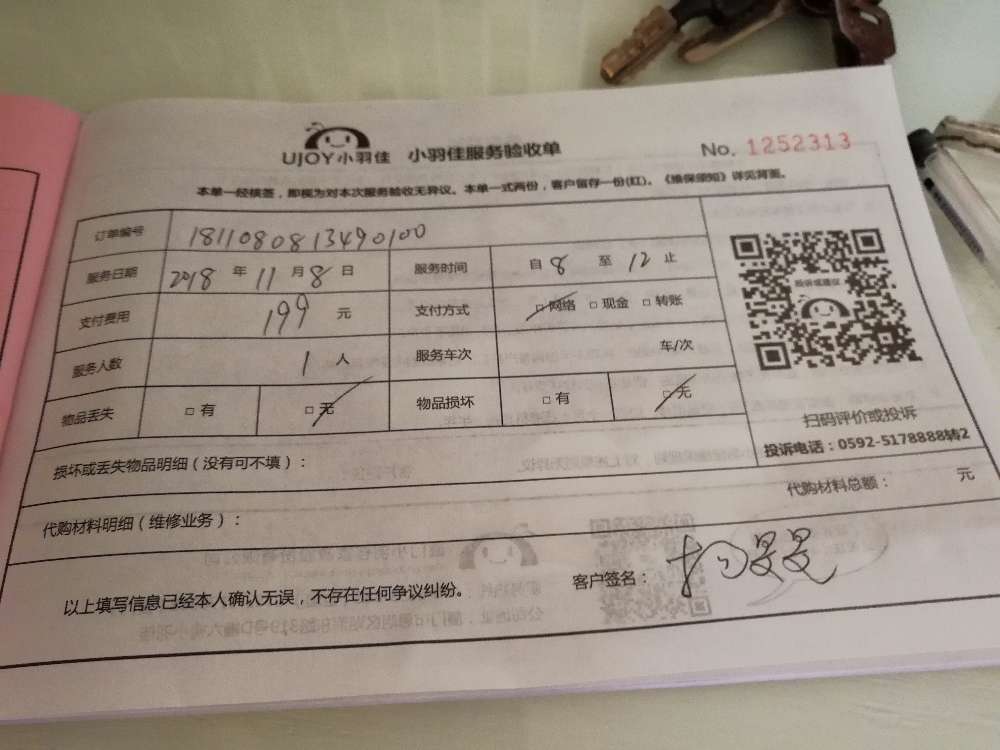 UJOY小羽佳 小羽佳服务验收单 No. 1252313
本单一经核签，即视为对本次服务验收无异议。本单一式两份，客户留存一份(红)。《维保须知》详见背面。
订单编号 1811080813490100
服务日期 2018 年 11 月 8 日 服务时间 自 8 至 12 止
支付费用 199 元 支付方式 □ 网络 □ 现金 □ 转账
服务人数 1 人 服务车次 车/次
物品丢失 □ 有 □ 无 物品损坏 □ 有 □ 无
投诉或建议
扫码评价或投诉
投诉电话：0592-5178888转2
损坏或丢失物品明细（没有可不填）：
代购材料明细（维修业务）： 代购材料总额： 元
以上填写信息已经本人确认无误，不存在任何争议纠纷。 客户签名：